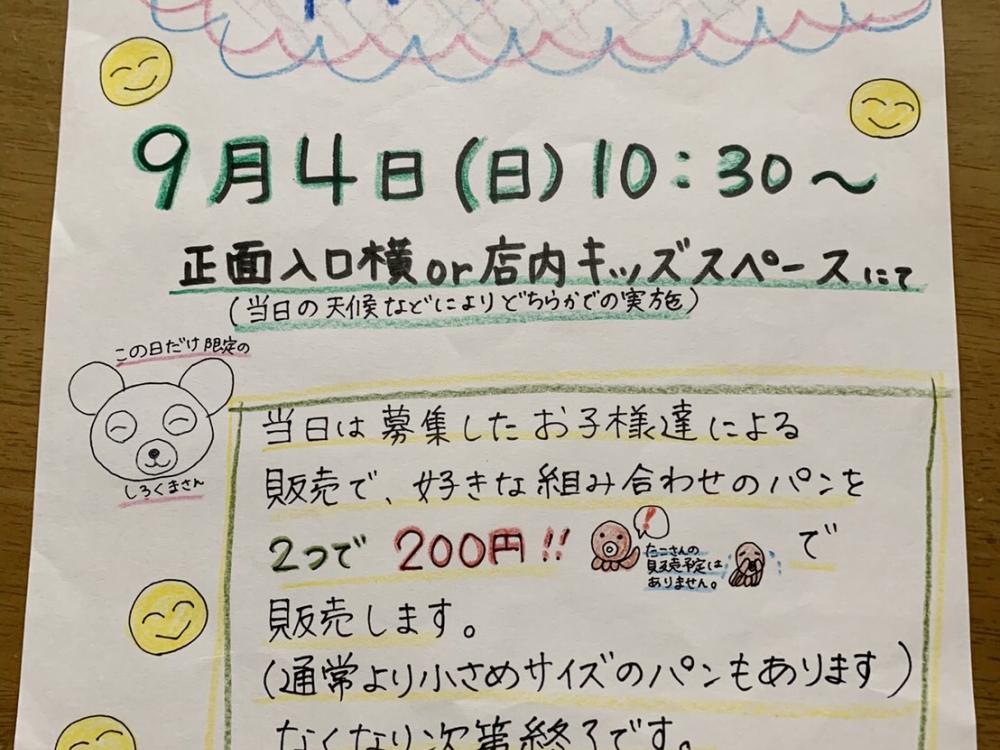 9月4日(日)10:30～
正面入口横or店内キッズスペースにて
(当日の天候などによりどちらかでの実施)
この日だけ限定の
しろくまさん
当日は募集したお子様達による
販売で、好きな組み合わせのパンを
2つで 200円!! で
!
たこさんの
販売予定は
ありません。
販売します。
(通常より小さめサイズのパンもあります)
なくなり次第終了です。